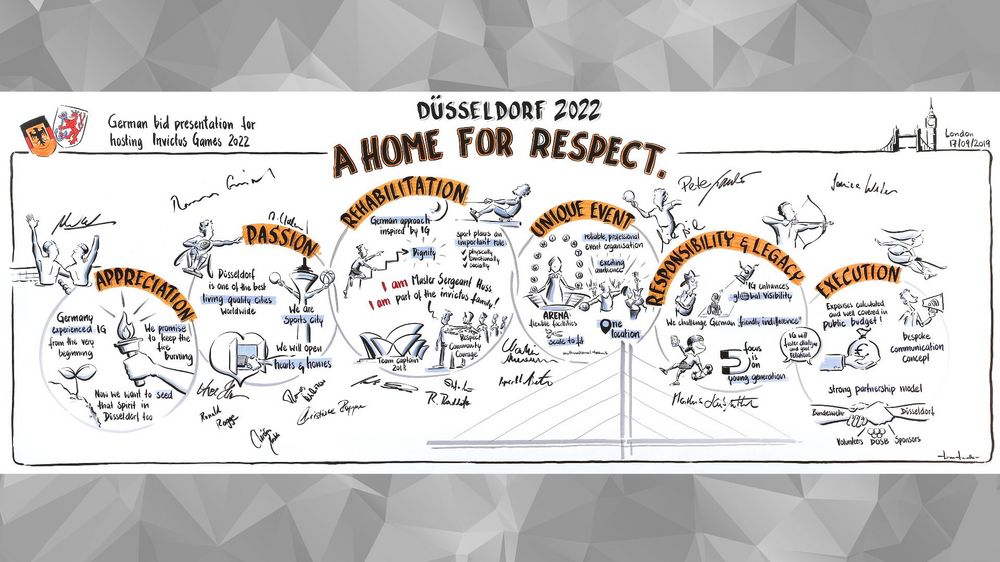 German bid presentation for
hosting Invictus Games 2022
DÜSSELDORF 2022
A HOME FOR RESPECT.
London
17/09/2019
APPRECIATION
Germany
experienced IG
from the very
beginning
We promise
to keep the
fire
burning
Now we want to seed
that spirit in
Düsseldorf too
PASSION
Düsseldorf
is one of the best
living quality cities
worldwide
We are
sports city
We will open
hearts & homes
Ronald
REHABILITATION
German approach
inspired by IG
Dignity
sport plays an
important role
✓ physically
✓ emotionally
✓ socially
I am Master Sergeant Huss.
I am part of the invictus family!
Team captain
2018
Respect
Community
Courage
UNIQUE EVENT
reliable, professional
event organisation
exciting
audience
ARENA
flexible facilities
scale to fit
One
location
RESPONSIBILITY & LEGACY
IG enhances
global visibility
We challenge German "friendly indifference"
IG will
foster dialogue
and good
relations
focus
is on
young generation
EXECUTION
Expenses calculated
and well covered in
Public budget!
Bespoke
communication
concept
strong partnership model
Bundeswehr
Düsseldorf
Volunteers DOSB Sponsors